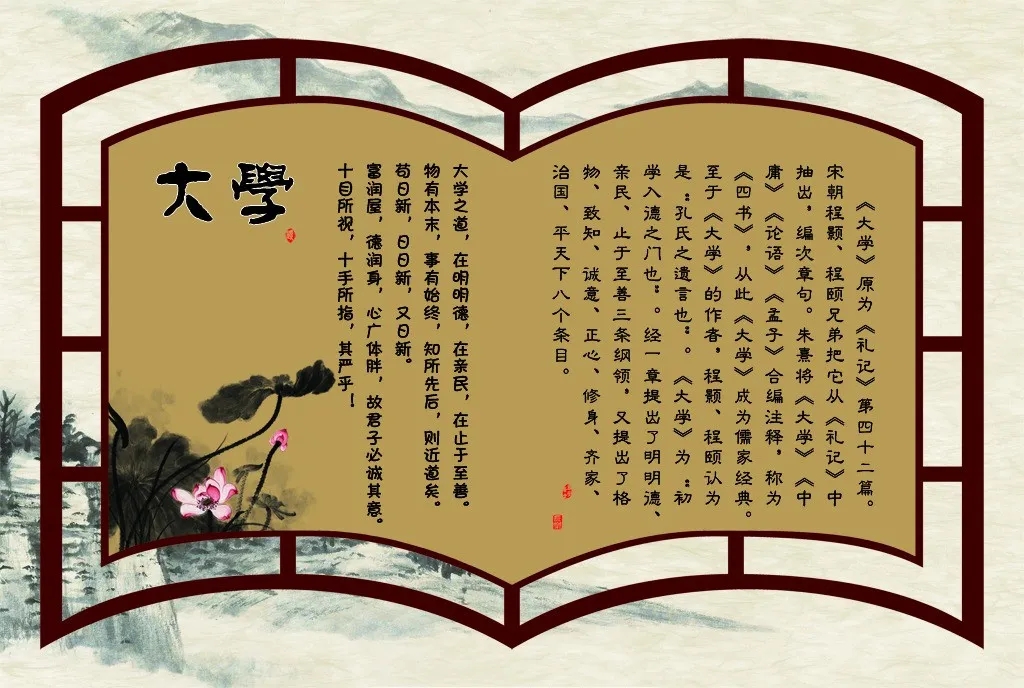 《大学》原为《礼记》第四十二篇。
宋朝程颢、程颐兄弟把它从《礼记》中
抽出，编次章句。朱熹将《大学》《中
庸》《论语》《孟子》合编注释，称为
《四书》，从此《大学》成为儒家经典。
至于《大学》的作者，程颢、程颐认为
是“孔氏之遗言也”。《大学》为“初
学入德之门也”。经一章提出了明明德、
亲民、止于至善三条纲领，又提出了格
物、致知、诚意、正心、修身、齐家、
治国、平天下八个条目。
大學
大学之道，在明明德，在亲民，在止于至善。
物有本末，事有始终，知所先后，则近道矣。
苟日新，日日新，又日新。
富润屋，德润身，心广体胖，故君子必诚其意。
十目所祝，十手所指，其严乎！